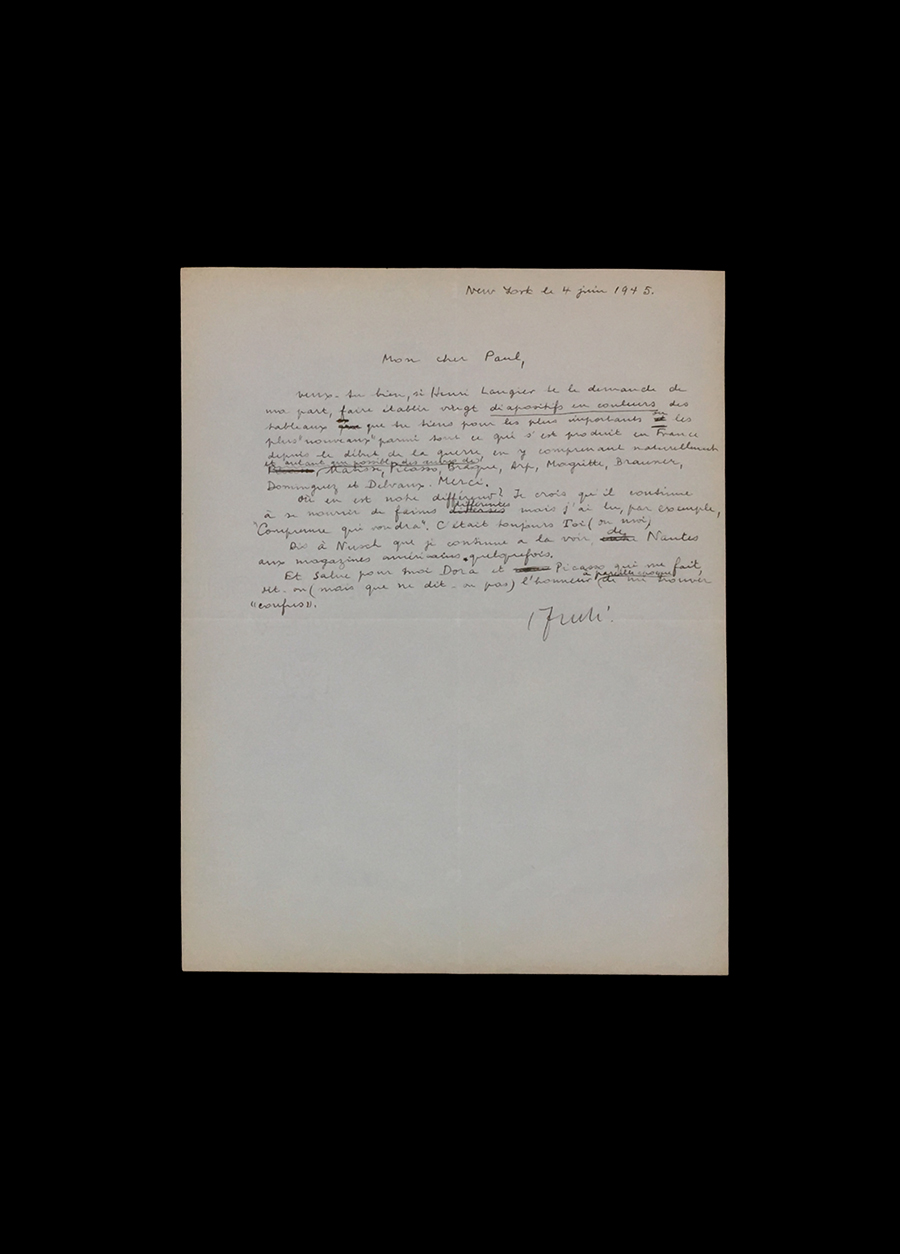 New York le 4 juin 1945.
Mon cher Paul,
Veux-tu bien, si Henri Laugier te le demande de
ma part, faire établir vingt diapositifs en couleurs des
tableaux que tu tiens pour les plus importants ou les
plus "nouveaux" parmi tout ce qui s'est produit en France
depuis le début de la guerre, en y comprenant naturellement
et autant que possible des autres de
Matisse, Picasso, Braque, Arp, Magritte, Brauner,
Dominguez et Delvaux. Merci.
Où en est notre différend? Je crois qu'il continue
à se nourrir de faims différentes mais j'ai lu, par exemple,
"Comprenne qui voudra". C'était toujours Toi (ou moi)
Dis à Nusch que je continue à la voir, de Nantes
aux magazines américains quelquefois.
Et salue pour moi Dora et Picasso qui me fait,
dit-on (mais que ne dit-on pas) l'honneur de me trouver
"confus".